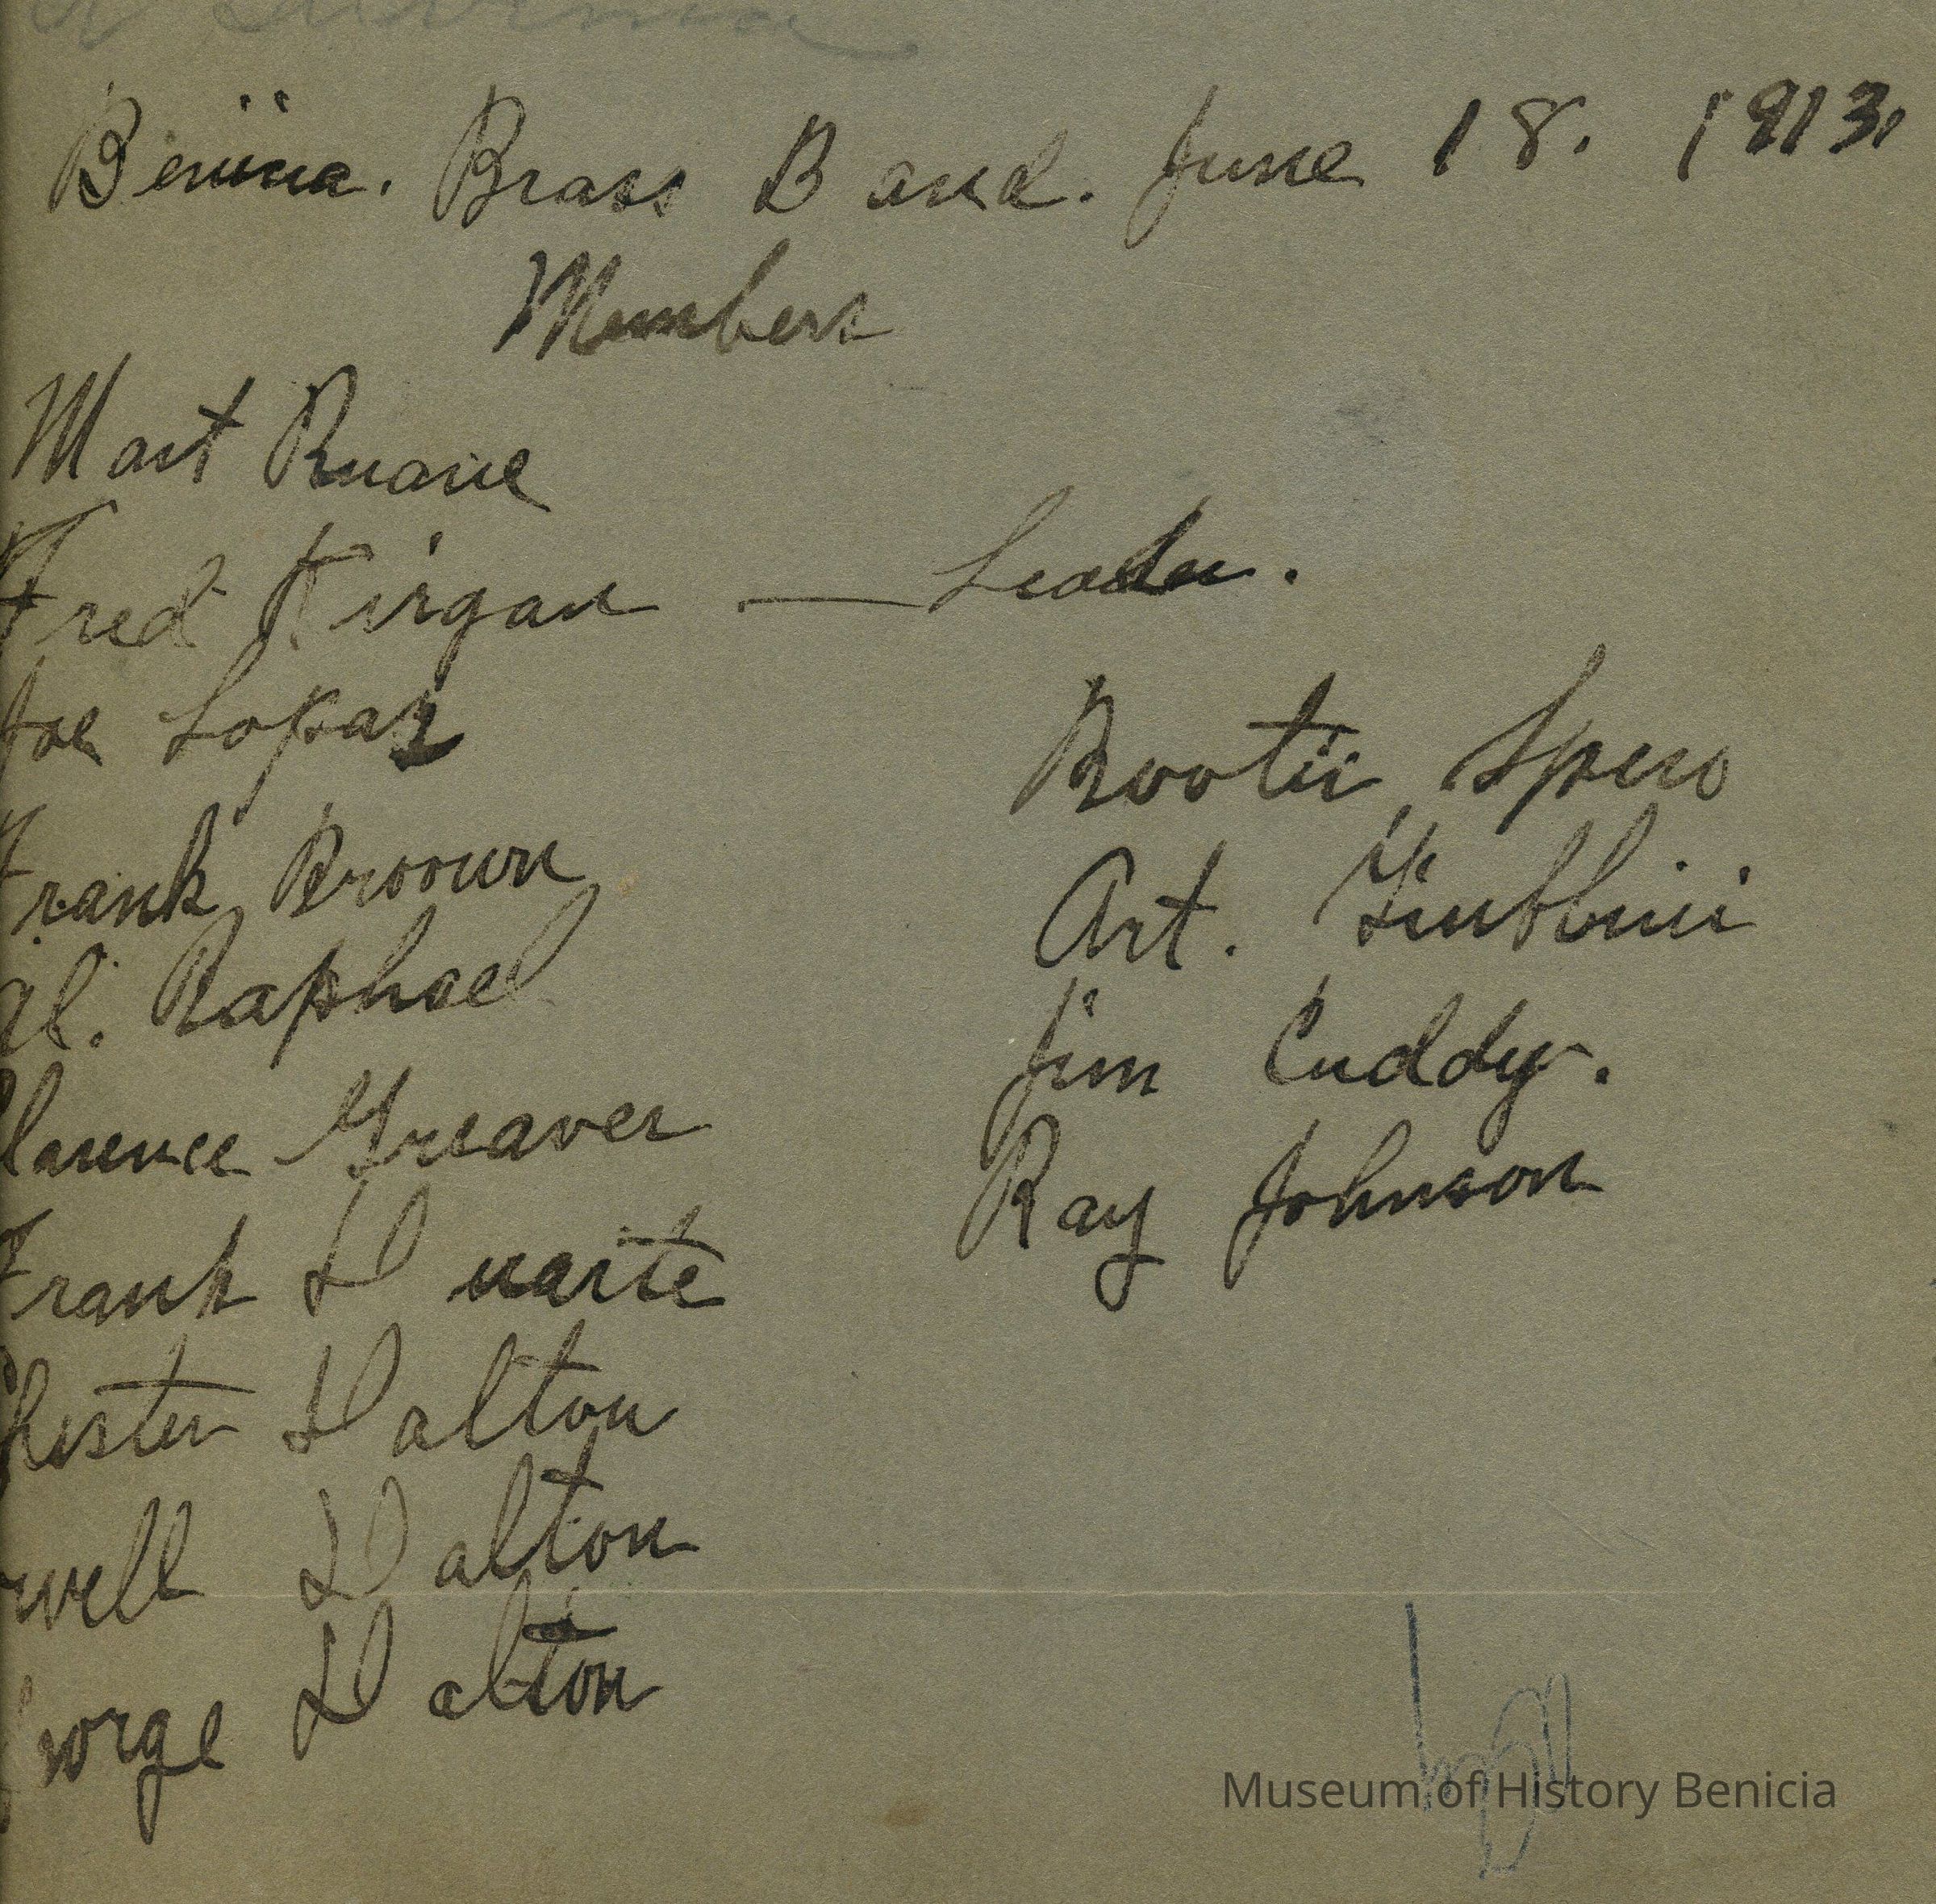 Benicia. Brass Band. June 18. 1913.
Members
Mart Ruane
Fred Kirgan — Leader.
Joe Lopaz
Frank Broown
Al. Raphael
Clarence Greaver
Frank Duarte
Chester Dalton
well Dalton
George Dalton
Bootii Spero
Art.
Jim Cuddy.
Ray Johnson
Museum of History Benicia